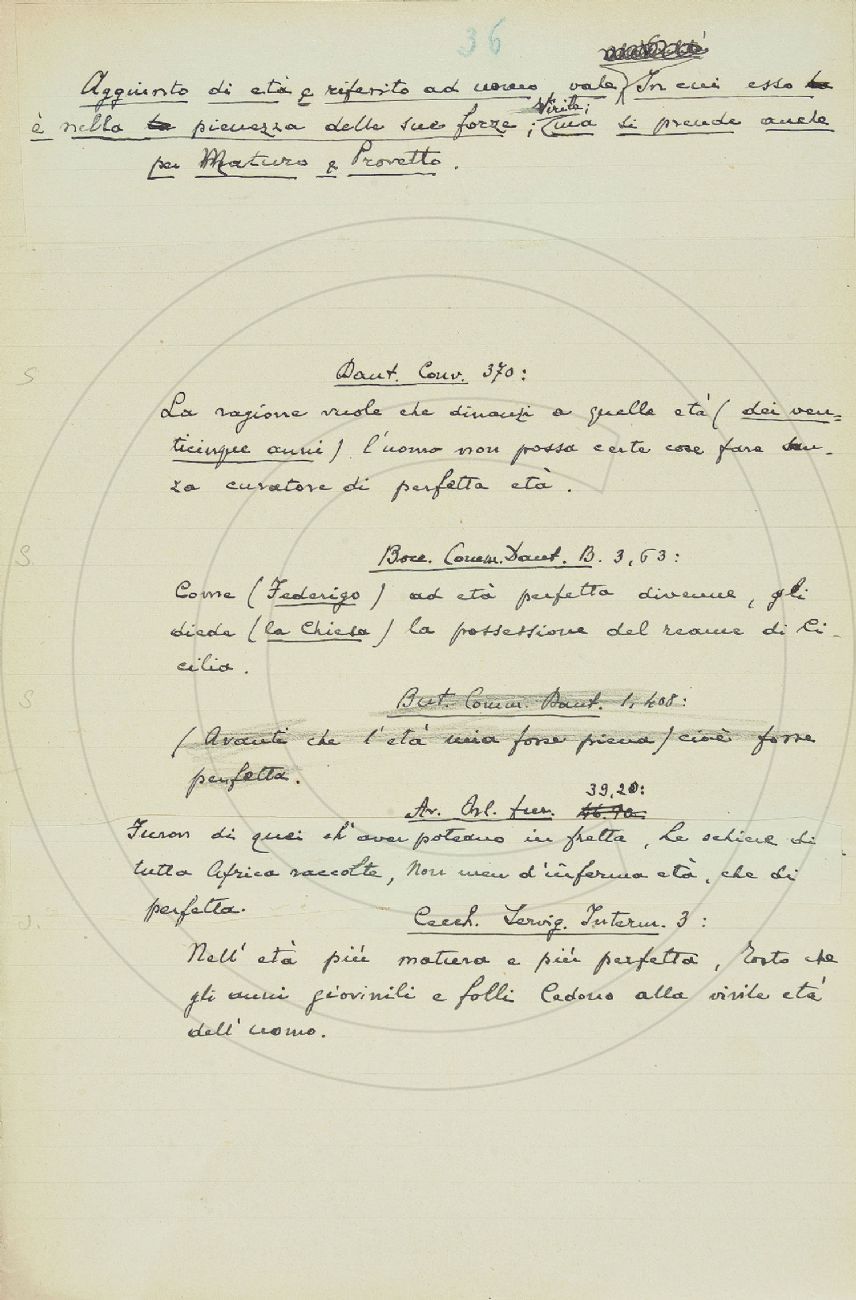 36
Aggiunto di età e riferito ad uomo, vale In cui esso
è nella pienezza delle sue forze; Virile; ma si prende anche
per Maturo e Provetto.
S
Dant. Conv. 370:
La ragione vuole che dinanzi a quella età (dei ven=
ticinque anni) l'uomo non possa certe cose fare san-
za curatore di perfetta età.
S.
Bocc. Comm. Dant. B. 3, 63:
Come (Federigo) ad età perfetta divenne, gli
diede (la Chiesa) la possessione del reame di Ci-
cilia.
S
But. Comm. Dant. 1, 408:
(Avanti che l'età mia fosse piena) cioè fosse
perfetta.
Ar. Orl. fur. 39, 20:
Furon di quei ch'aver poteano in fretta, Le schiere di
tutta Africa raccolte, Non men d'inferma età, che di
perfetta.
S.
Cecch. Servig. Interm. 3:
Nell' età più matura e più perfetta, Tosto che
gli anni giovinili e folli Cedono alla virile età
dell' uomo.
C